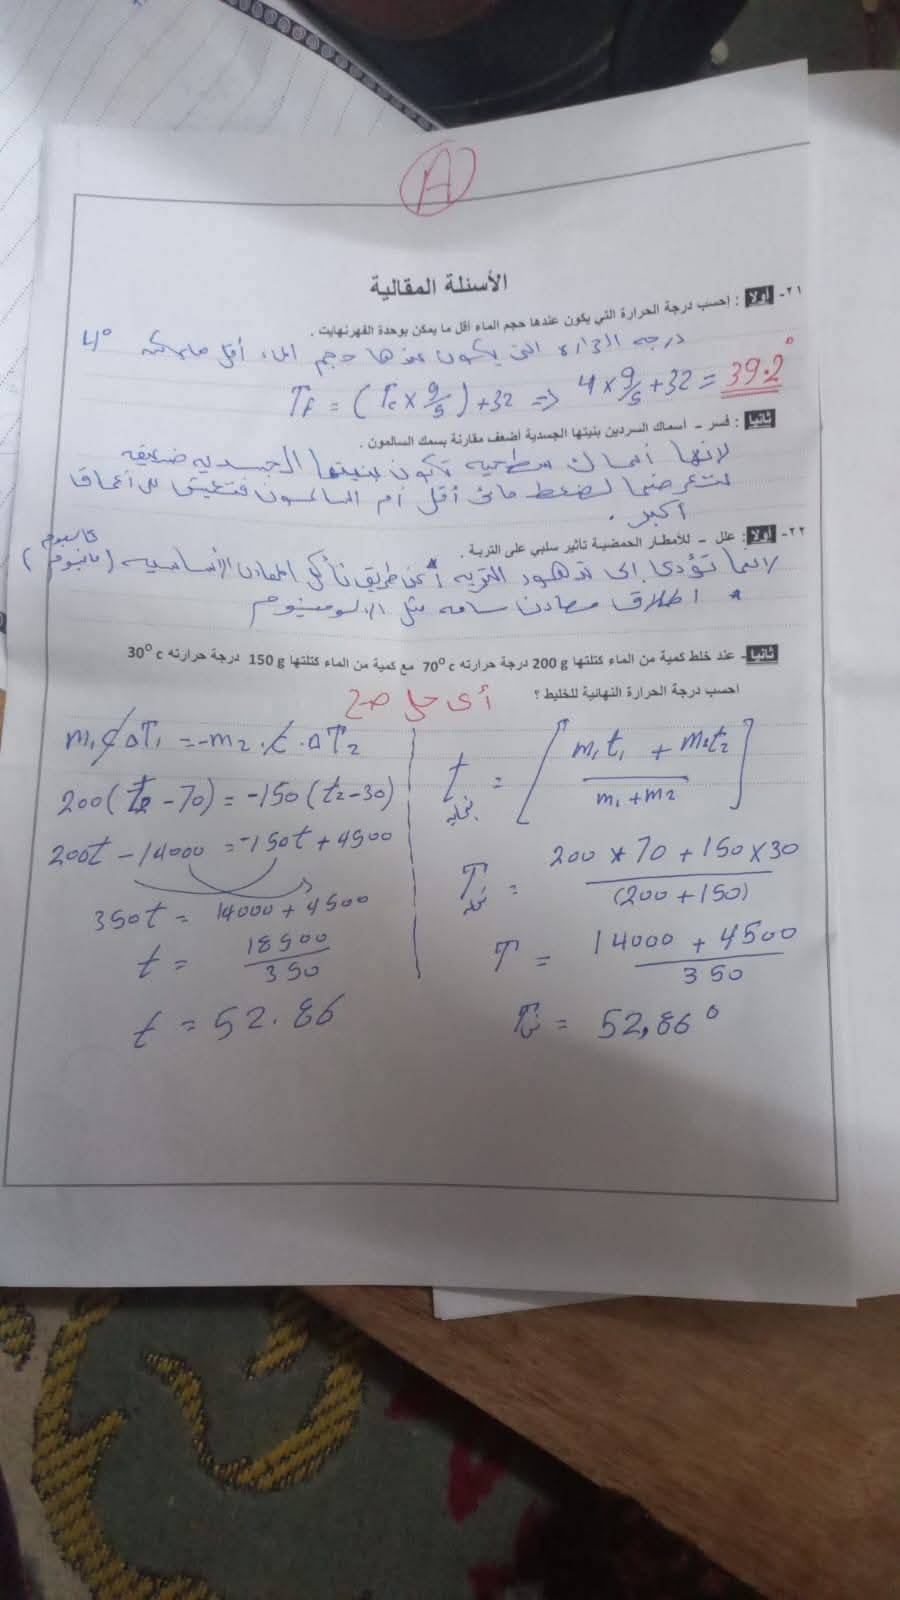 A
الأسئلة المقالية
٢١- أولا : إحسب درجة الحرارة التي يكون عندها حجم الماء أقل ما يمكن بوحدة الفهرنهايت .
درجه الحراره التى يكون عندها حجم الماء أقل ما يمكن 4°
Tf = (Tc × 9/5) + 32 => 4 × 9/5 + 32 = 39.2°
ثانيا : فسر – أسماك السردين بنيتها الجسدية أضعف مقارنة بسمك السالمون .
لانها أسماك سطحيه تكون بنيتها الجسديه ضعيفه
لتعرضها لضغط مائى أقل أم السالمون فتعيش على أعماق
أكبر .
٢٢- أولا : علل – للأمطار الحمضية تأثير سلبي على التربة .
لانها تؤدى إلى تدهور التربه * عن طريق تأكل المعادن الأساسيه (كالسيوم
* اطلاق معادن سامه مثل الالومينيوم
ثانيا- عند خلط كمية من الماء كتلتها 200 g درجة حرارته 70⁰ c مع كمية من الماء كتلتها 150 g درجة حرارته 30⁰ c
احسب درجة الحرارة النهائية للخليط ؟
أى حل صح
m₁ c ΔT₁ = -m₂ . c . ΔT₂
200(t₂ - 70) = -150(t₂ - 30)
200t - 14000 = -150t + 4500
350t = 14000 + 4500
t = 18500 / 350
t = 52.86
t نهايه = [ m₁t₁ + m₂t₂ / m₁ + m₂ ]
T = 200 * 70 + 150 × 30 / (200 + 150)
T = 14000 + 4500 / 350
T = 52,86°